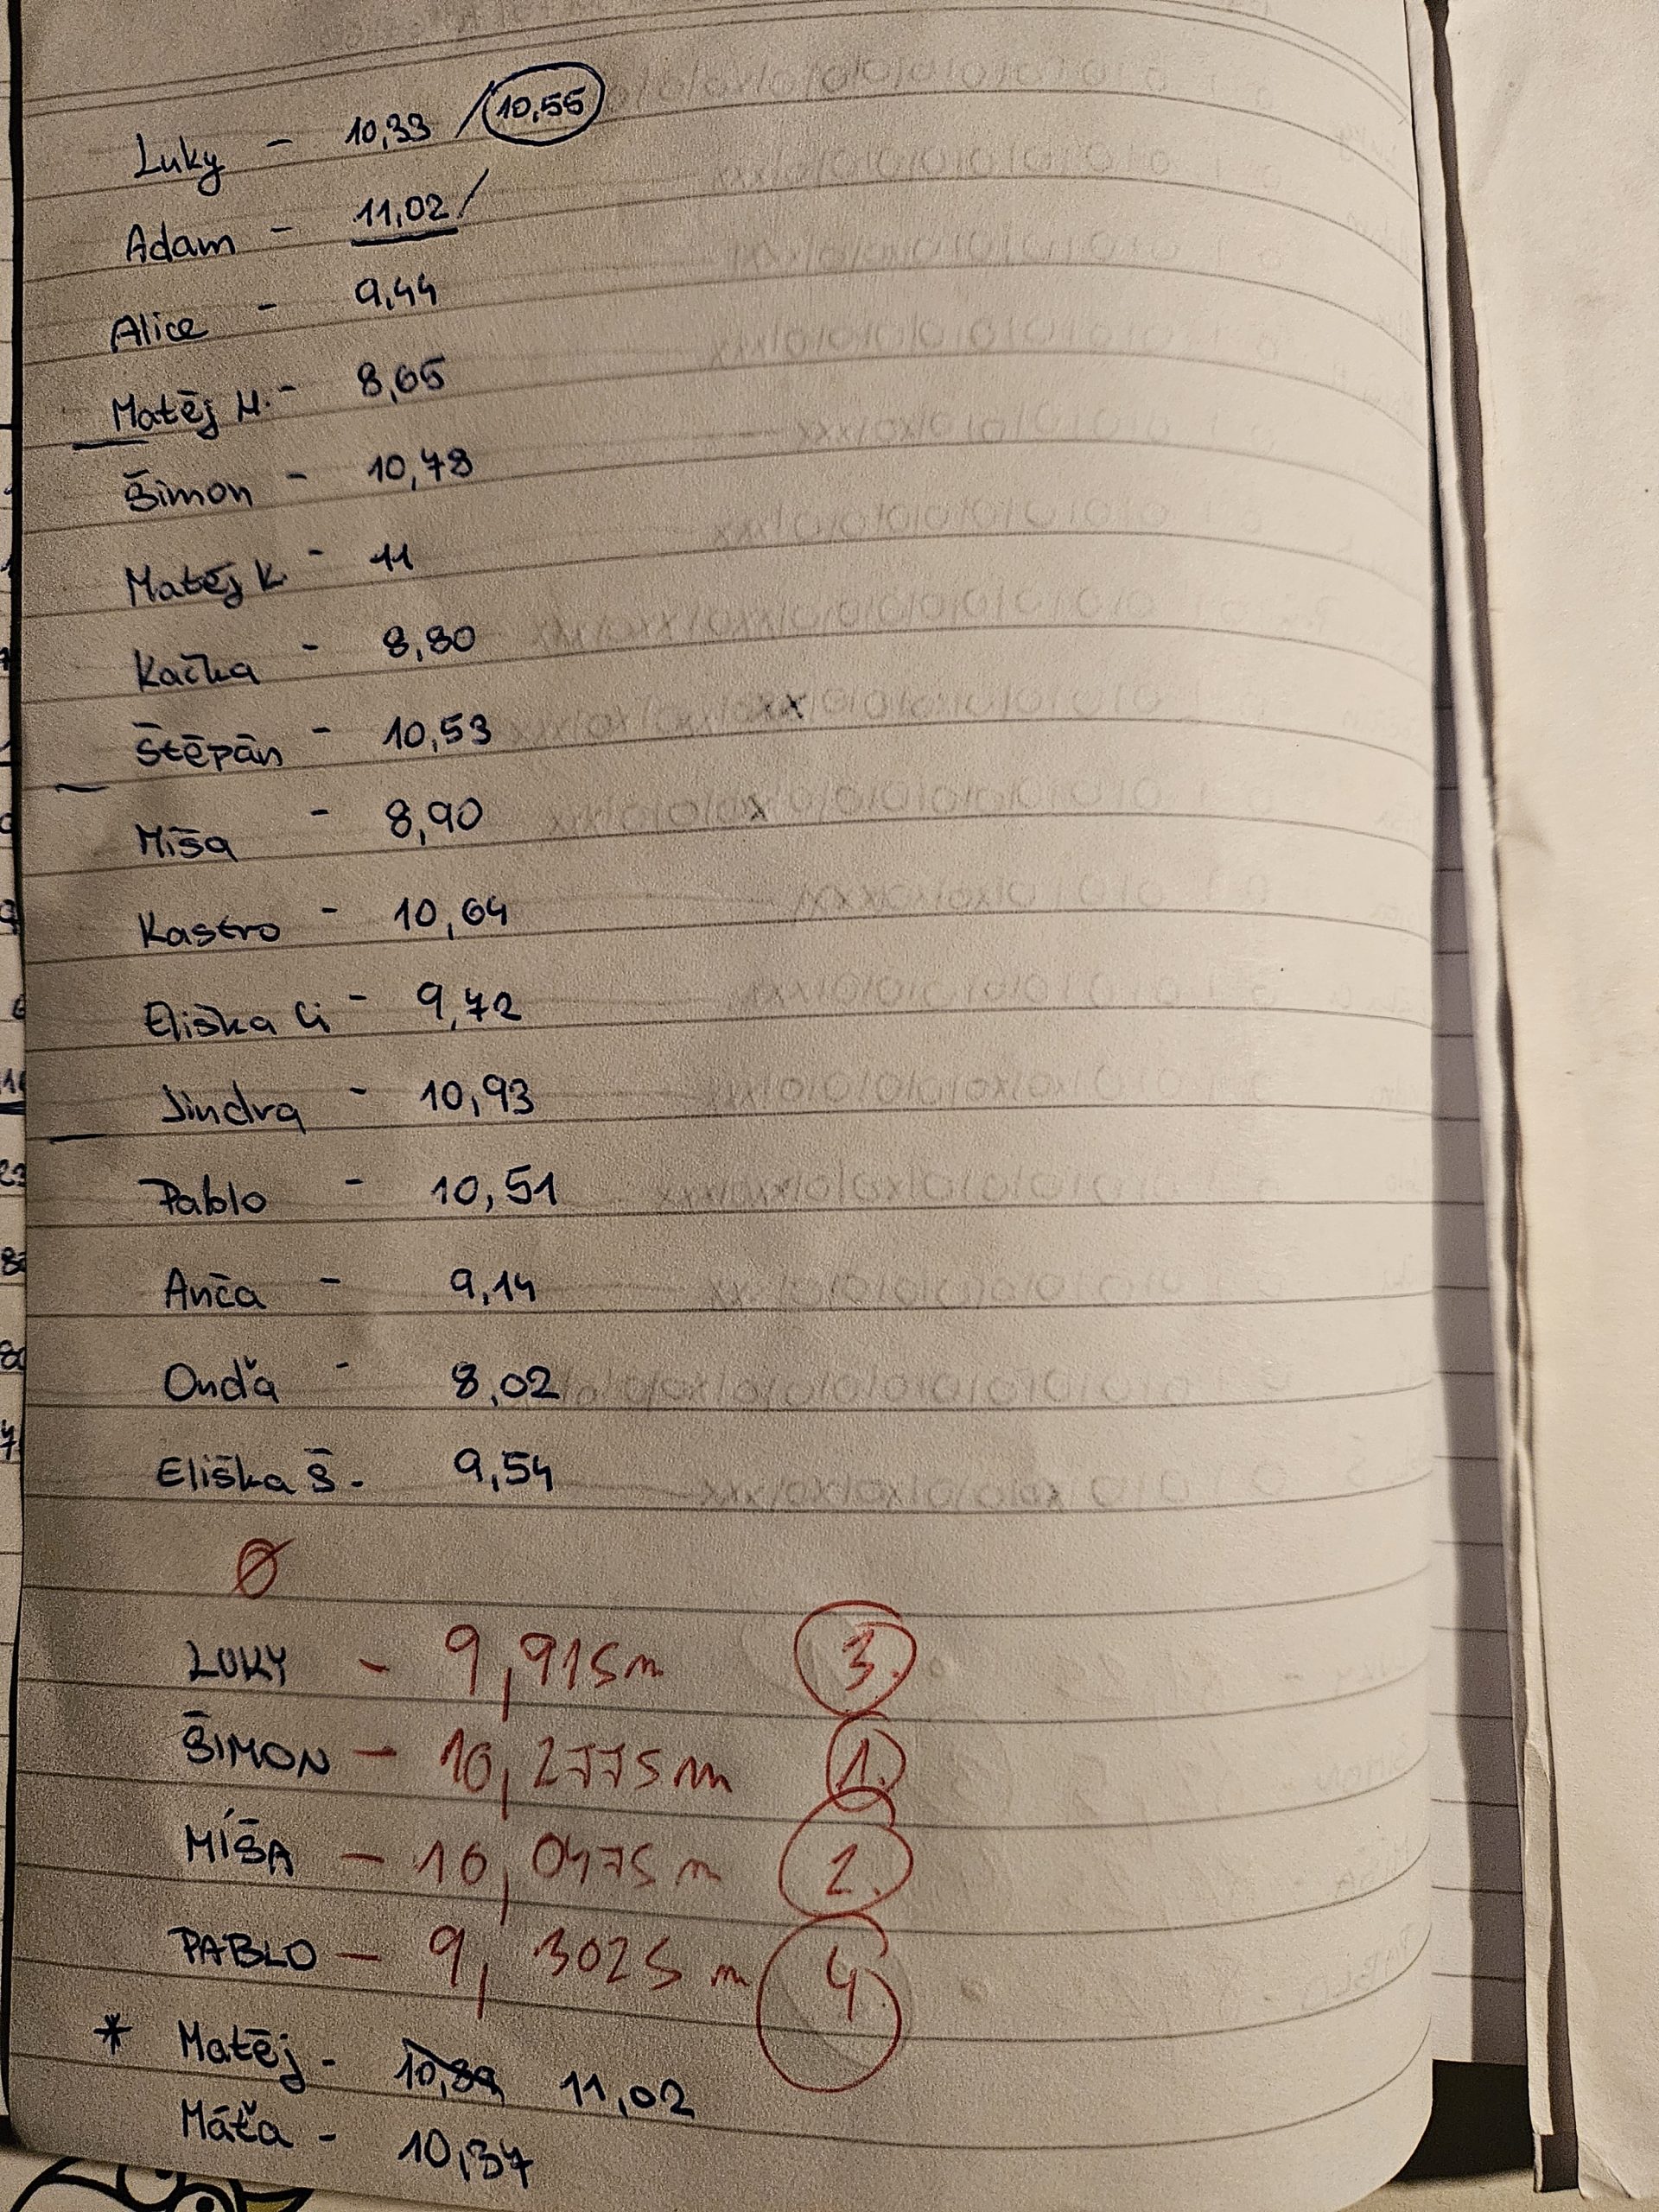 Luky - 10,33 / 10,55
Adam - 11,02 /
Alice - 9,44
Matěj H. - 8,65
Šimon - 10,78
Matěj K. - 11
Kačka - 8,80
Štěpán - 10,53
Míša - 8,90
Kastro - 10,64
Eliška Ci - 9,72
Jindra - 10,93
Pablo - 10,51
Anča - 9,14
Onďa - 8,02
Eliška Š. - 9,54
Ø
LUKY - 9,915m 3.
ŠIMON - 10,2775m 1.
MÍŠA - 10,0475m 2.
PABLO - 9,3025m 4.
* Matěj - 10,89 11,02
Máťa - 10,37